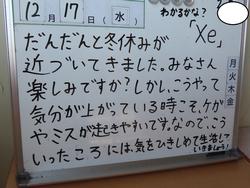 12月17日(水)
わかるかな?
「Xe」
だんだんと冬休みが
近づいてきました。みなさん
楽しみですか?しかし、こうやって
気分が上がっている時こそ、ケガ
やミスが起きやすいです。なので、こう
いったころには、気をひきしめて生活して
いきましょう!
月火木金